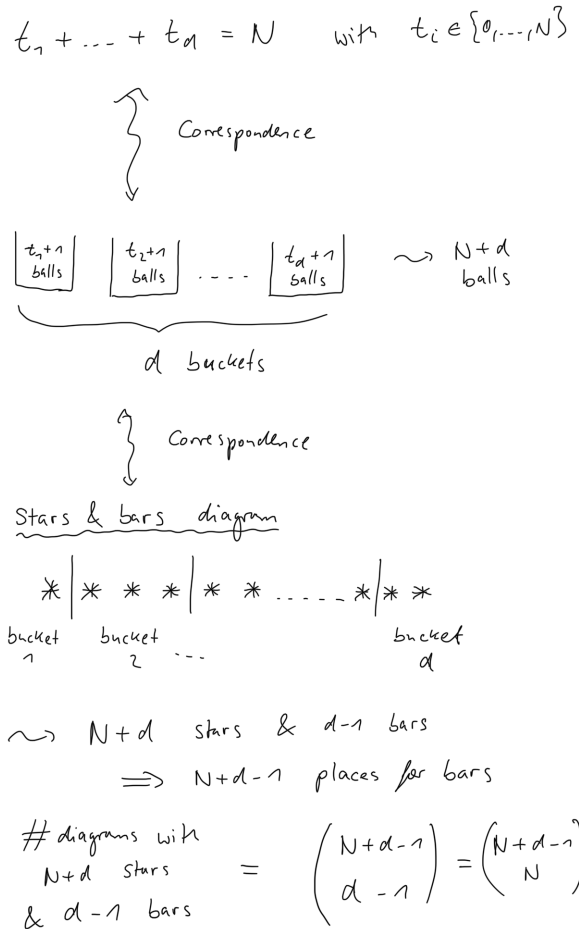 t₁ + ... + t_d = N with t_i ∈ {0,...,N}
Correspondence
t₁+1 balls t₂+1 balls .... t_d+1 balls ⇝ N+d balls
d buckets
Correspondence
Stars & bars diagram
* | * * * | * * ...... * | * *
bucket 1 bucket 2 ... bucket d
⇝ N+d stars & d-1 bars
⟹ N+d-1 places for bars
# diagrams with
N+d stars = (N+d-1 d-1) = (N+d-1 N)
& d-1 bars